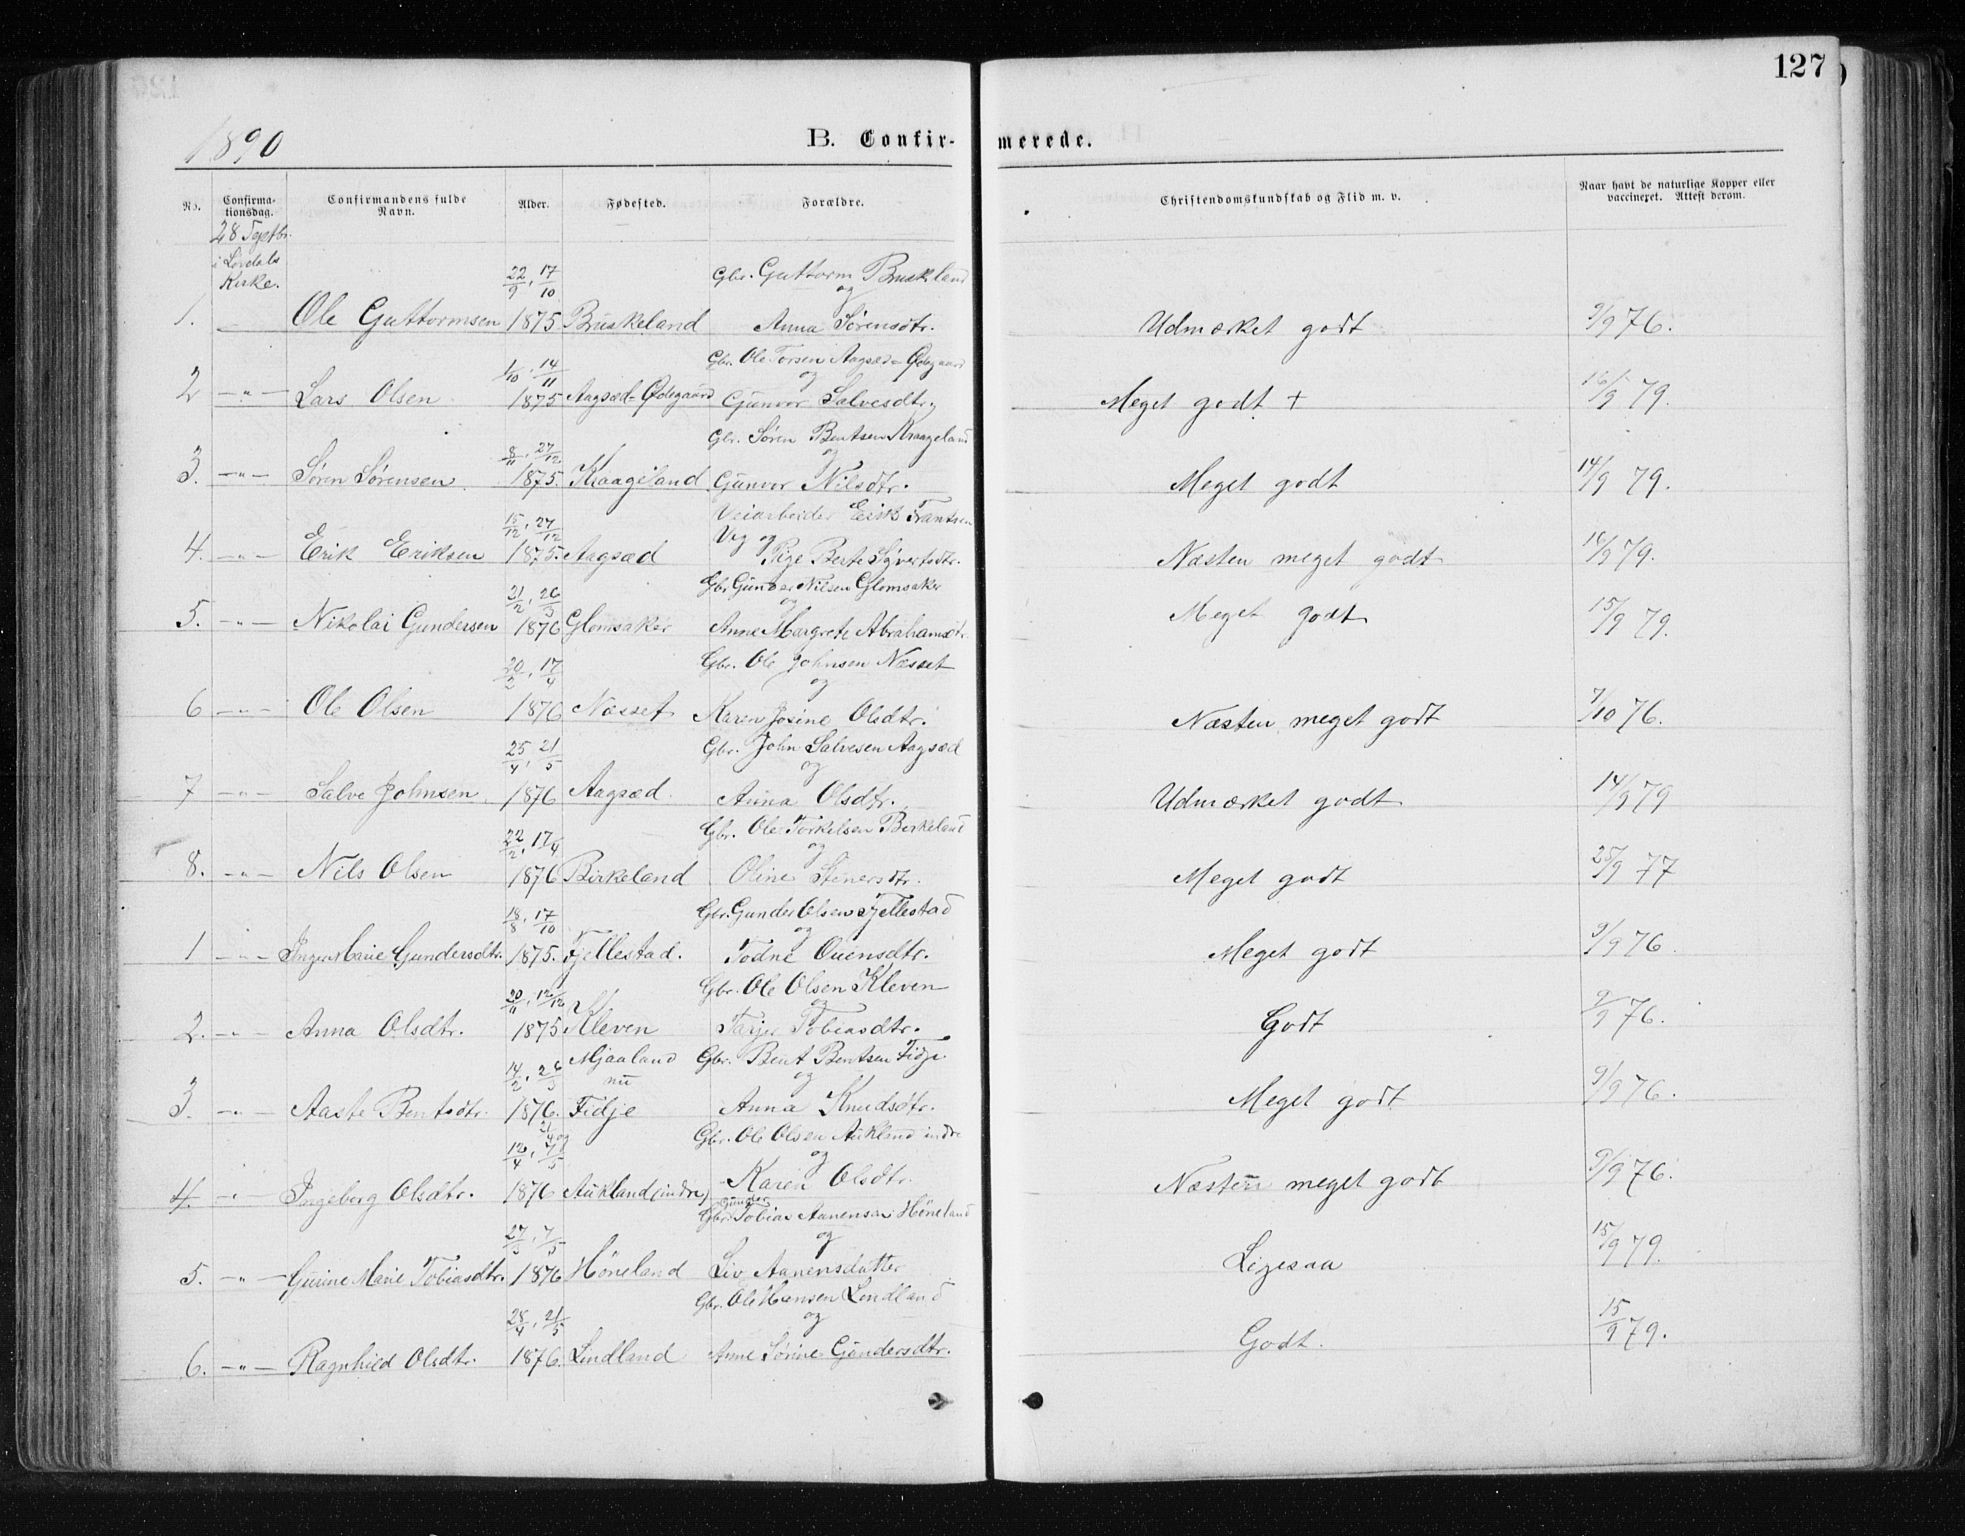 127
1890
B. Confir- merede.
No. Confirmationsdag. Confirmandens fulde Navn. Alder. Fødested. Forældre. Christendomskundskab og Flid m. v. Naar havt de naturlige Kopper eller vaccineret. Attest derom.
28 Septbr.
i
Kirke.
22/9, 17/10 Gbr. Guttorm Bruskeland
og
1. Ole Guttormsen 1875 Bruskeland Anna Sørensdtr. Udmærket godt 9/9 76.
1/10, 14/11 Gbr. Ole Torsen Aagsæd-Ødegaard
og
2 -"- Lars Olsen 1875 Aagsæd-Ødegaard Gunvor Salvesdtr. Meget godt + 16/9 79.
8/11, 27/12 Gbr. Søren Bentsen Kraageland
og
3. -"- Søren Sørensen 1875. Kraageland Gunvor Nilsdtr. Meget godt 14/9 79.
15/12, 27/12 Veiarbeider Erik Frantsen
og
4. -"- Erik Eriksen 1875. Aagsæd Pige Berte Syvertsdtr. Næsten meget godt 16/9 79.
21/2, 26/3 Gbr. Gunder Nilsen Glomsaker
og
5. -"- Nikolai Gundersen 1876 Glomsaker Anne Margrete Abrahamsdtr. Meget godt 15/9 79.
20/2, 17/4 Gbr. Ole Johnsen Næsset
og
6 -"- Ole Olsen 1876 Næsset Karen Josine Olsdtr. Næsten meget godt 7/10 76.
25/4, 21/5 Gbr. John Salvesen Aagsæd
og
7 -"- Salve Johnsen 1876 Aagsæd. Anna Olsdtr. Udmærket godt 14/9 79
22/2, 17/4 Gbr. Ole Torkelsen Birkeland
og
8. -"- Nils Olsen 1876 Birkeland Oline Stenersdtr. Meget godt 25/9 77
18/8, 17/10 Gbr. Gunder Olsen Fjellestad
og
1 -"- Inger Marie Gundersdtr. 1875. Fjellestad. Todne Ouensdtr. Meget godt 9/9 76
20/11, 12/12 Gbr. Ole Olsen Kleven
og
2. -"- Anna Olsdtr. 1875 Kleven Tarjer Tobiasdtr. Godt 9/9 76.
14/2, 26/3 Mjaaland Gbr. Bent Bentsen Fidje
nu og
3. -"- Aaste Bentsdtr. 1876. Fidje Anna Knudsdtr. Meget godt 9/9 76.
21/4 og
12/4, 7/5 Gbr. Ole Olsen Aukland indre
og
4. -"- Ingeborg Olsdtr. 1876 Aukland (indre) Karen Olsdtr. Næsten meget godt 9/9 76.
Gunder
27/3, 7/5 Gbr. Tobias Aanensen Höneland
og
5. -"- Gurine Marie Tobiasdtr. 1876 Höneland Liv Aanensdatter Ligesaa 15/9 79.
Gbr. Ole Hansen Lindland
28/4, 21/5 og
6. -"- Ragnhild Olsdtr. 1876. Lindland Anne Sørine Gundersdtr. Godt. 15/9 79.